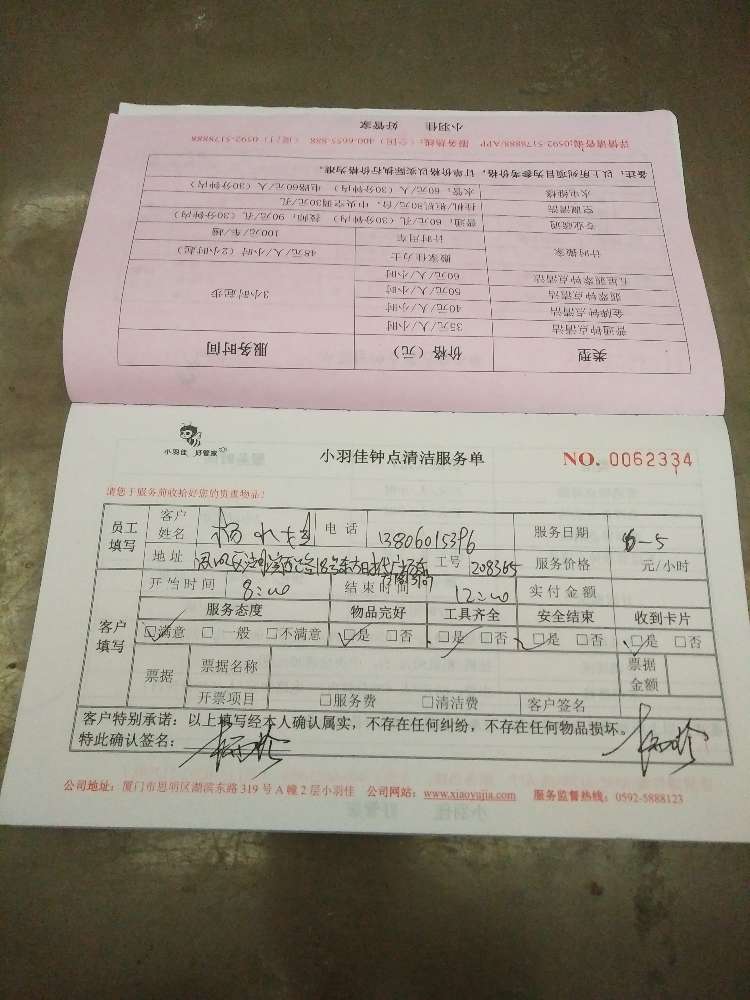 小羽佳 好管家
详情咨询0592-5178888/APP 服务热线：（全国）400-6655-888 （厦门）0592-5178888
备注：以上所列项目为参考价格，订单价格以实际执行价格为准。
水电维修 水管：60元/人（30分钟内） 电路60元/人（30分钟内）
空调清洗 挂机/柜机80元/台，中央空调30元/孔
专业疏通 普通：60元/孔（30分钟内） 90元/孔（30分钟内）
计时搬家 计时用车 100元/车/趟
搬家佳力士 48元/人/小时（2小时起）
60元/人/小时
翡翠钟点清洁 50元/人/小时 3小时起步
金牌钟点清洁 40元/人/小时
普通钟点清洁 35元/人/小时
类型 价格（元） 服务时间
小羽佳 好管家
小羽佳钟点清洁服务单 NO. 0062334
请您于服务前收拾好您的贵重物品！
员工填写 客户姓名 杨 电话 13806015396 服务日期 6-5
地址 工号 208365 服务价格 元/小时
客户填写 开始时间 8:00 结束时间 12:00 实付金额
服务态度 物品完好 工具齐全 安全结束 收到卡片
☑满意 □ 一般 □不满意 ☑是 □否 ☑是 □否 ☑是 □否 ☑是 □否
票据 票据名称 票据金额
开票项目 □服务费 □清洁费 客户签名
客户特别承诺：以上填写经本人确认属实，不存在任何纠纷，不存在任何物品损坏。
特此确认签名：
公司地址：厦门市思明区湖滨东路 319 号 A 幢 2 层小羽佳 公司网站：www.xiaoyujia.com 服务监督热线：0592-5888123